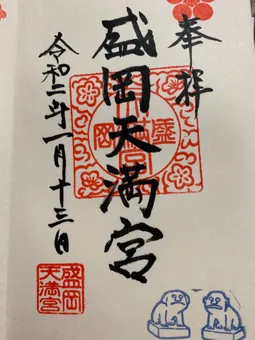 奉拝
盛岡天満宮
令和二年一月十三日
盛岡
天満宮